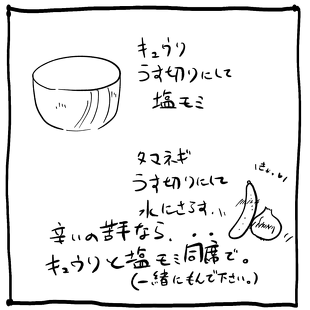 キュウリ
うす切りにして
塩モミ
タマネギ
うす切りにして
水にさらす..
辛いの苦手なら...
キュウリと塩モミ同席で。
(一緒にもんで下さい。)